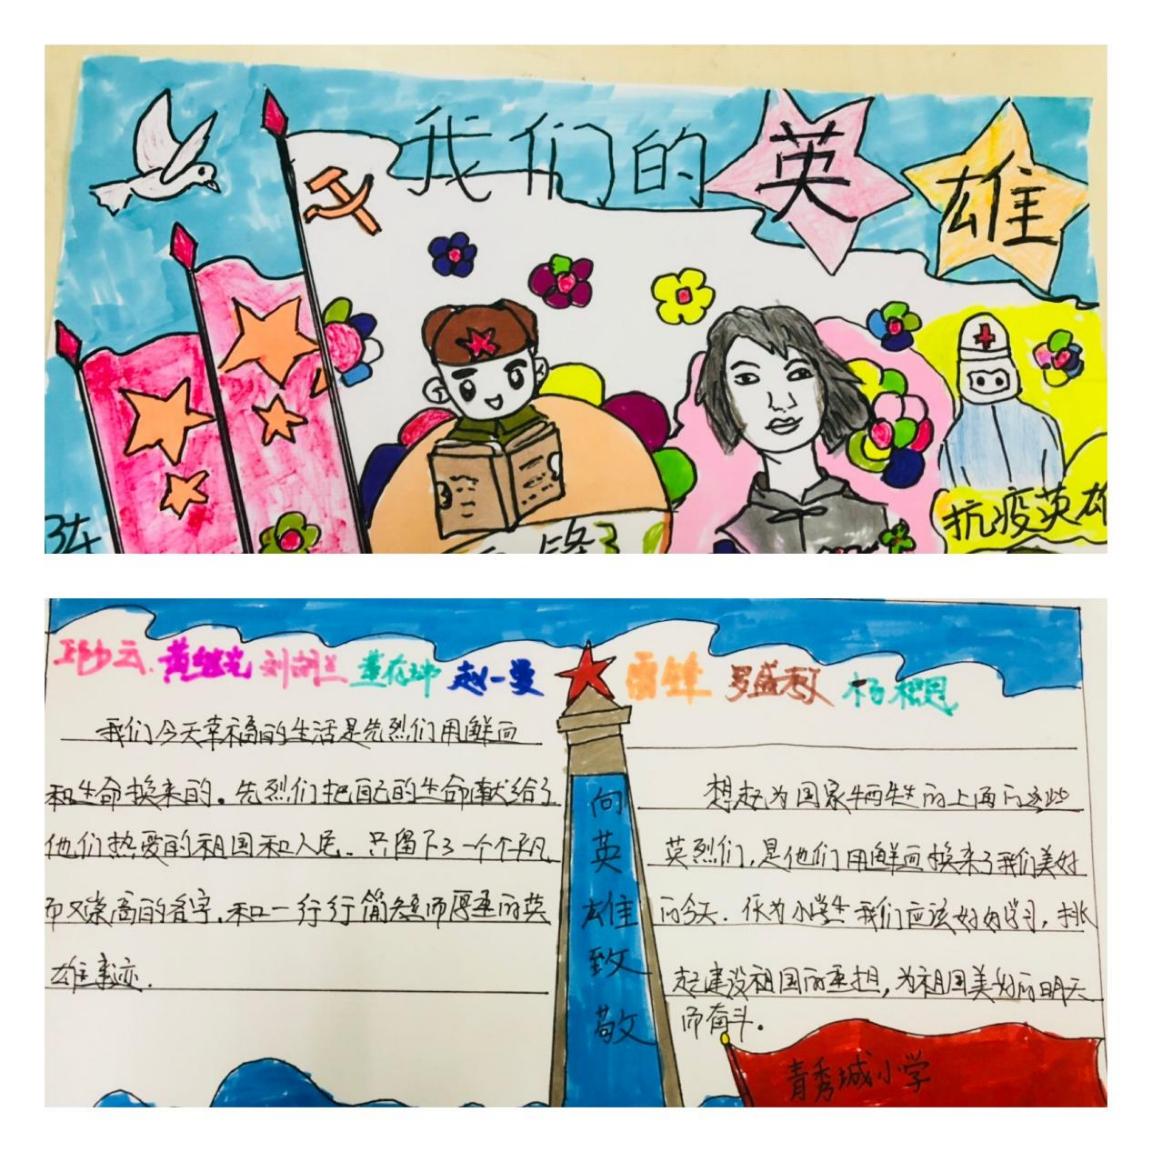 我们的英雄
抗疫英雄
锋
邱少云 黄继光 刘胡兰 董存瑞 赵一曼 雷锋 罗盛教 杨根思
我们今天幸福的生活是先烈们用鲜血
和生命换来的。先烈们把自己的生命献给了
他们热爱的祖国和人民。只留下了一个个平凡
而又崇高的名字,和一行行简短而厚重的英
雄事迹.
向英雄致敬
想起为国家牺牲的上面的这些
英烈们,是他们用鲜血换来了我们美好
的今天.作为小学生我们应该好好学习,挑
起建设祖国的重担,为祖国美好的明天
而奋斗。
青秀城小学